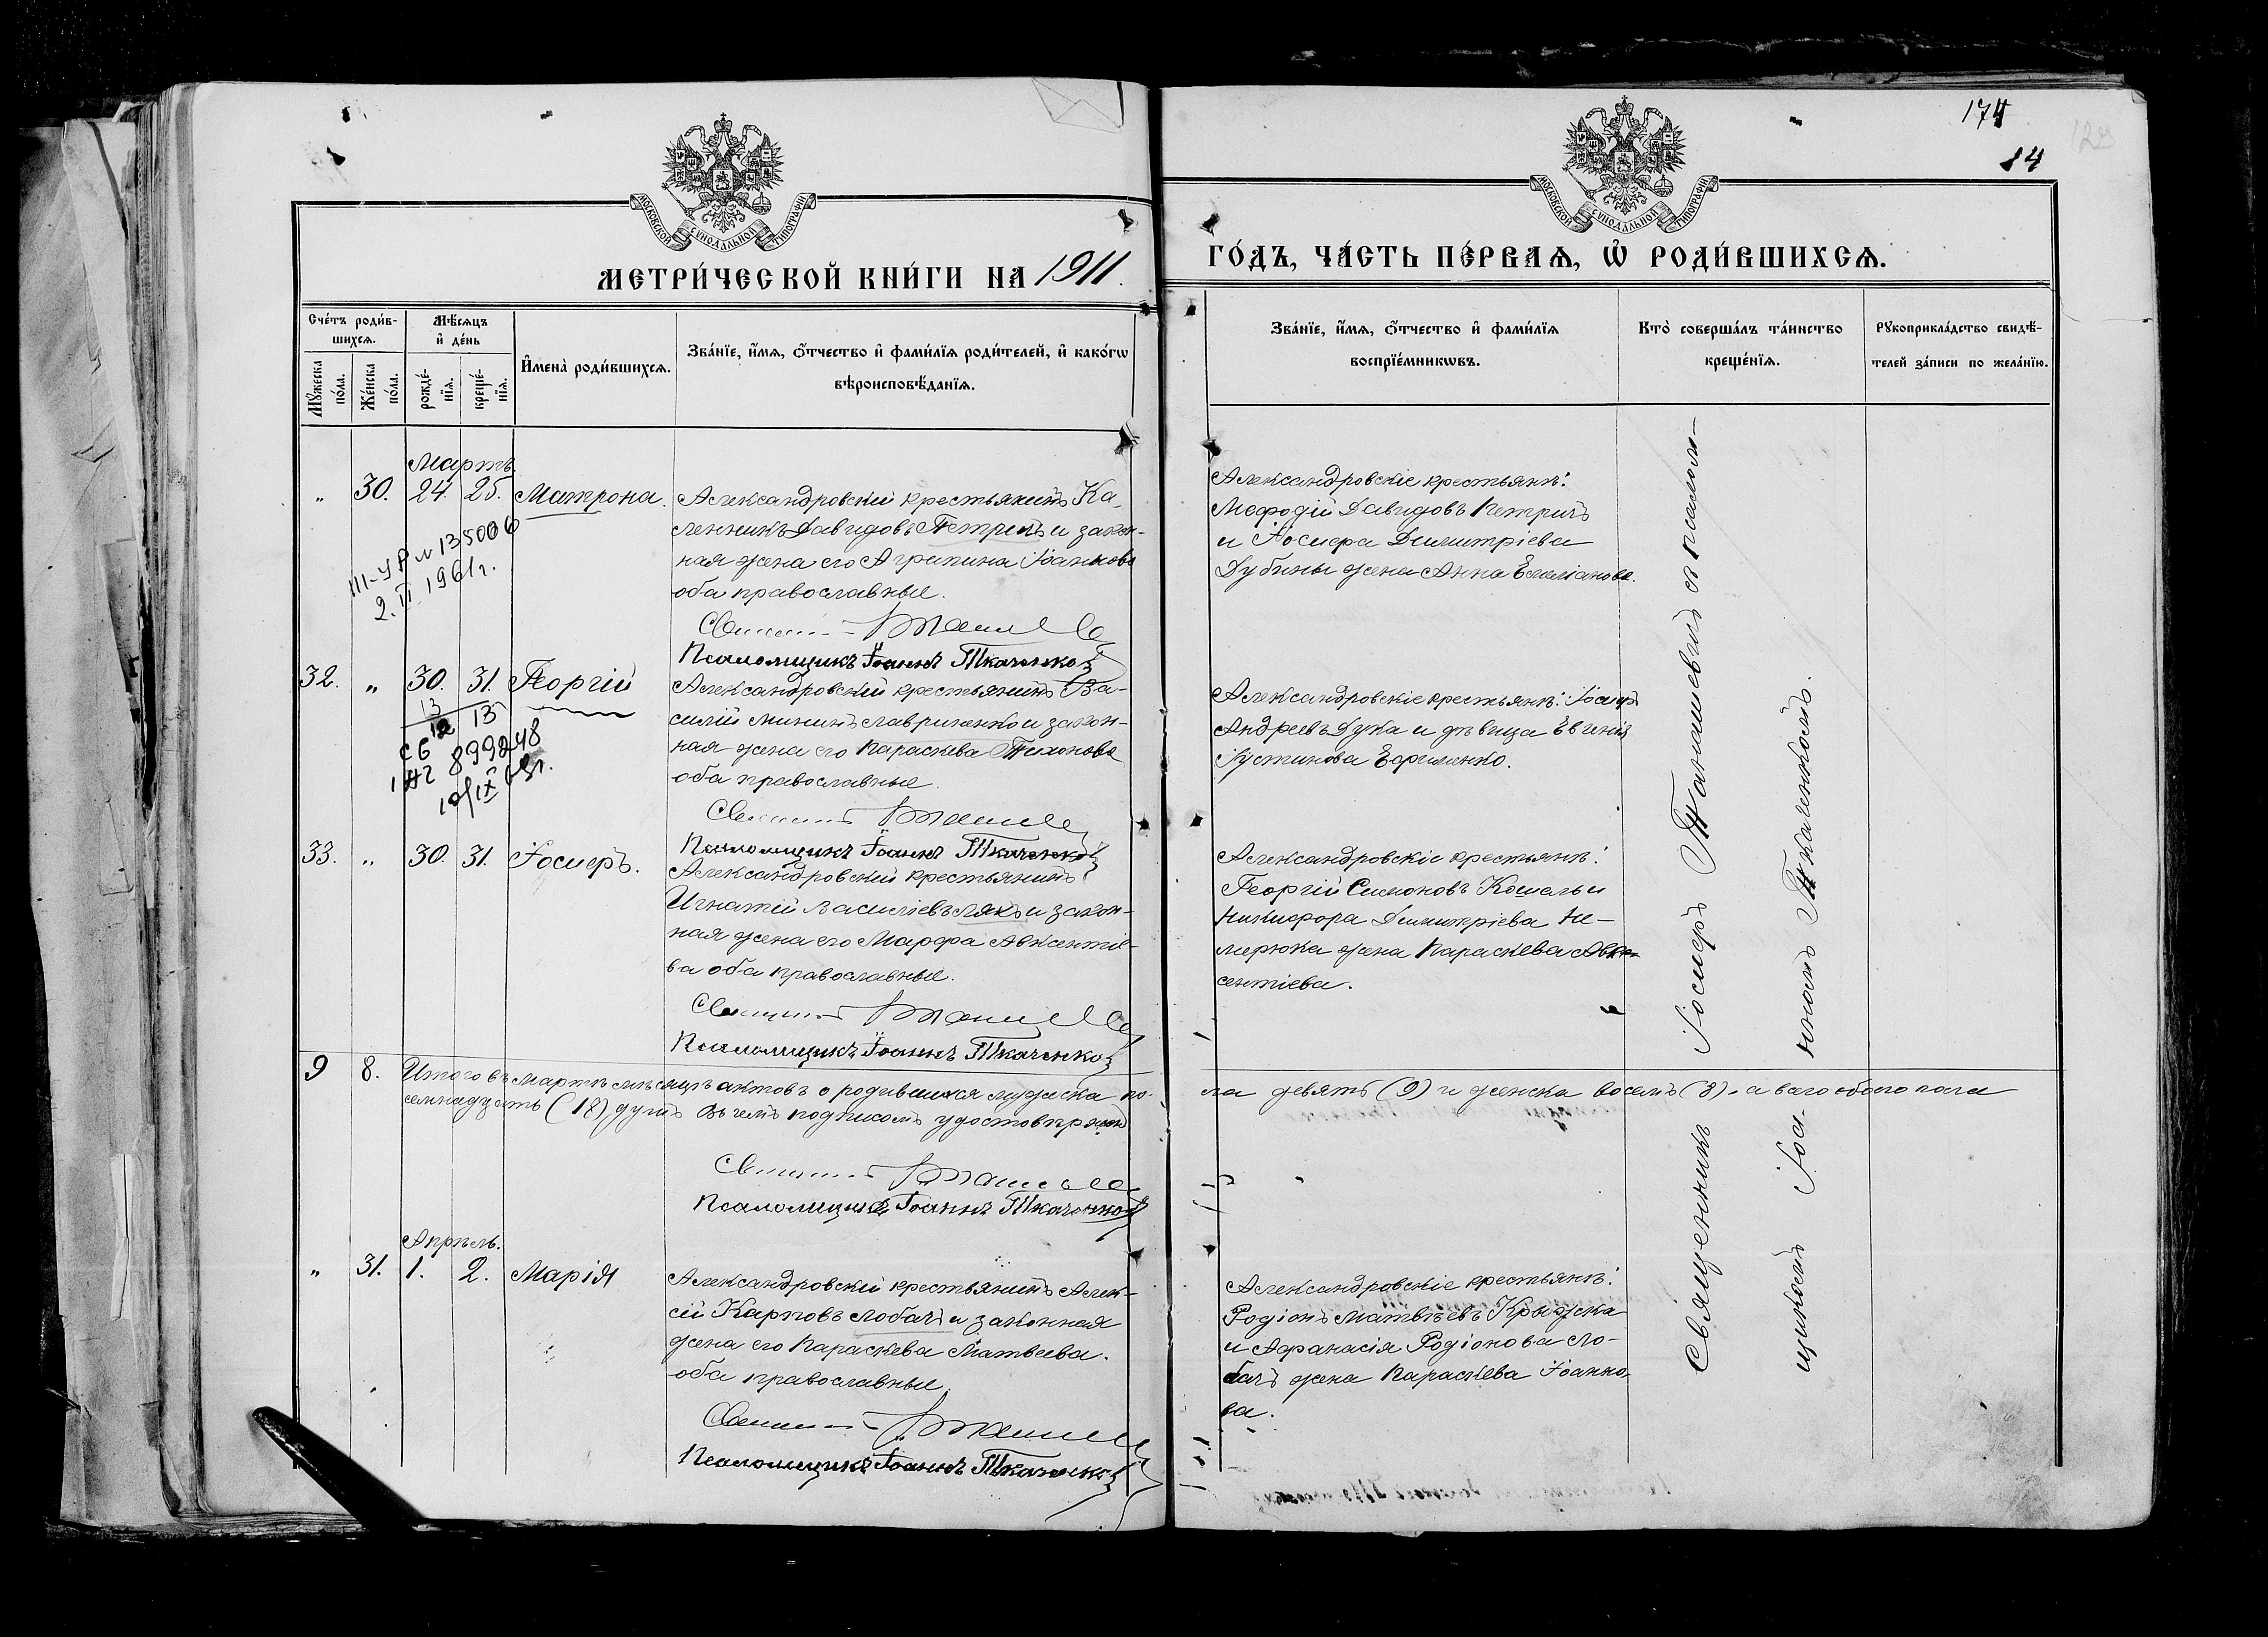 174
84
МОСКОВСКОЙ СѴНОДАЛЬНОЙ ТИПОГРАФІИ
МОСКОВСКОЙ СѴНОДАЛЬНОЙ ТИПОГРАФІИ
МЕТРИ́ЧЕСКОЙ КНИ́ГИ НА 1911
ГО́ДЪ, ЧА́СТЬ ПЕ́РВАѦ, Ѡ҆ РОДИ́ВШИХСѦ.
Сче́тъ роди́в-
шихсѧ.
Мꙋ́жеска по́ла.
Же́нска по́ла.
Мѣ́сѧцъ
и҆ де́нь
рожде́-
нїѧ.
креще́-
нїѧ.
И҆мена̀ роди́вшихсѧ.
Зва́нїе, и҆́мѧ, ѻ҆́тчество и҆ фами́лїѧ роди́телей, и҆ како́гѡ
вѣроисповѣ́данїѧ.
Зва́нїе, и҆́мѧ, ѻ҆́тчество и҆ фами́лїѧ
воспрїе́мникѡвъ.
Кто̀ соверша́лъ та́инство
креще́нїѧ.
Рꙋкоприкла́дство свидѣ́-
телей за́писи по жела́нїю.
Мартъ.
" 30. 24. 25. Матрона.
Александровскій крестьянинъ Ка-
ленникъ Давидовъ Петричъ и закон-
ная жена его Агрипина Іоаннова
оба православные.
Псаломщикъ Іоаннъ Ткаченко
Александровскіе крестьяне:
Мефодій Давидовъ Петричъ
и Іосифа Димитріева
Дубины жена Анна Емеліанова.
III-УР № 135006
2.II.1961г.
32. " 30. 31. Георгій
Александровскій крестьянинъ Ва-
силій Мининъ Лавриненко и закон-
ная жена его Параскева Тихонова
оба православные.
Псаломщикъ Іоаннъ Ткаченко
Александровскіе крестьяне: Іосифъ
Андреевъ Дука и дѣвица Евгенія
Іустинова Ефименко.
13 13
899248
33. " 30. 31. Іосифъ.
Александровскій крестьянинъ
Игнатій Василіевъ Лякъ и закон-
ная жена его Марфа Авксентіе-
ва оба православные.
Псаломщикъ Іоаннъ Ткаченко
Александровскіе крестьяне:
Георгій Симоновъ Кошель и
Никифора Димитріева Не-
мерюка жена Параскева Авк-
сентіева.
9 8. Итого въ мартѣ мѣсяцѣ актовъ о родившихся мужеска по-
ла девять (9) и женска восемь (8), а всего обоего пола
семнадцать (17) душъ въ чемъ подписомъ удостовѣряемъ
Псаломщикъ Іоаннъ Ткаченко
Апрѣль.
" 31. 1. 2. Марія
Александровскій крестьянинъ Алек-
сій Карповъ Лобачъ и законная
жена его Параскева Матвеева.
оба православные.
Псаломщикъ Іоаннъ Ткаченко
Александровскіе крестьяне:
Родіонъ Матвѣевъ Крыжка
и Афанасія Родіонова Ло-
бачъ жена Параскева Іоанно-
ва.
Священникъ Іосифъ Танашевичъ съ псалом-
щикомъ Іоанномъ Ткаченкомъ.